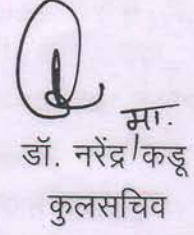 मा.
डॉ. नरेंद्र कडू
कुलसचिव